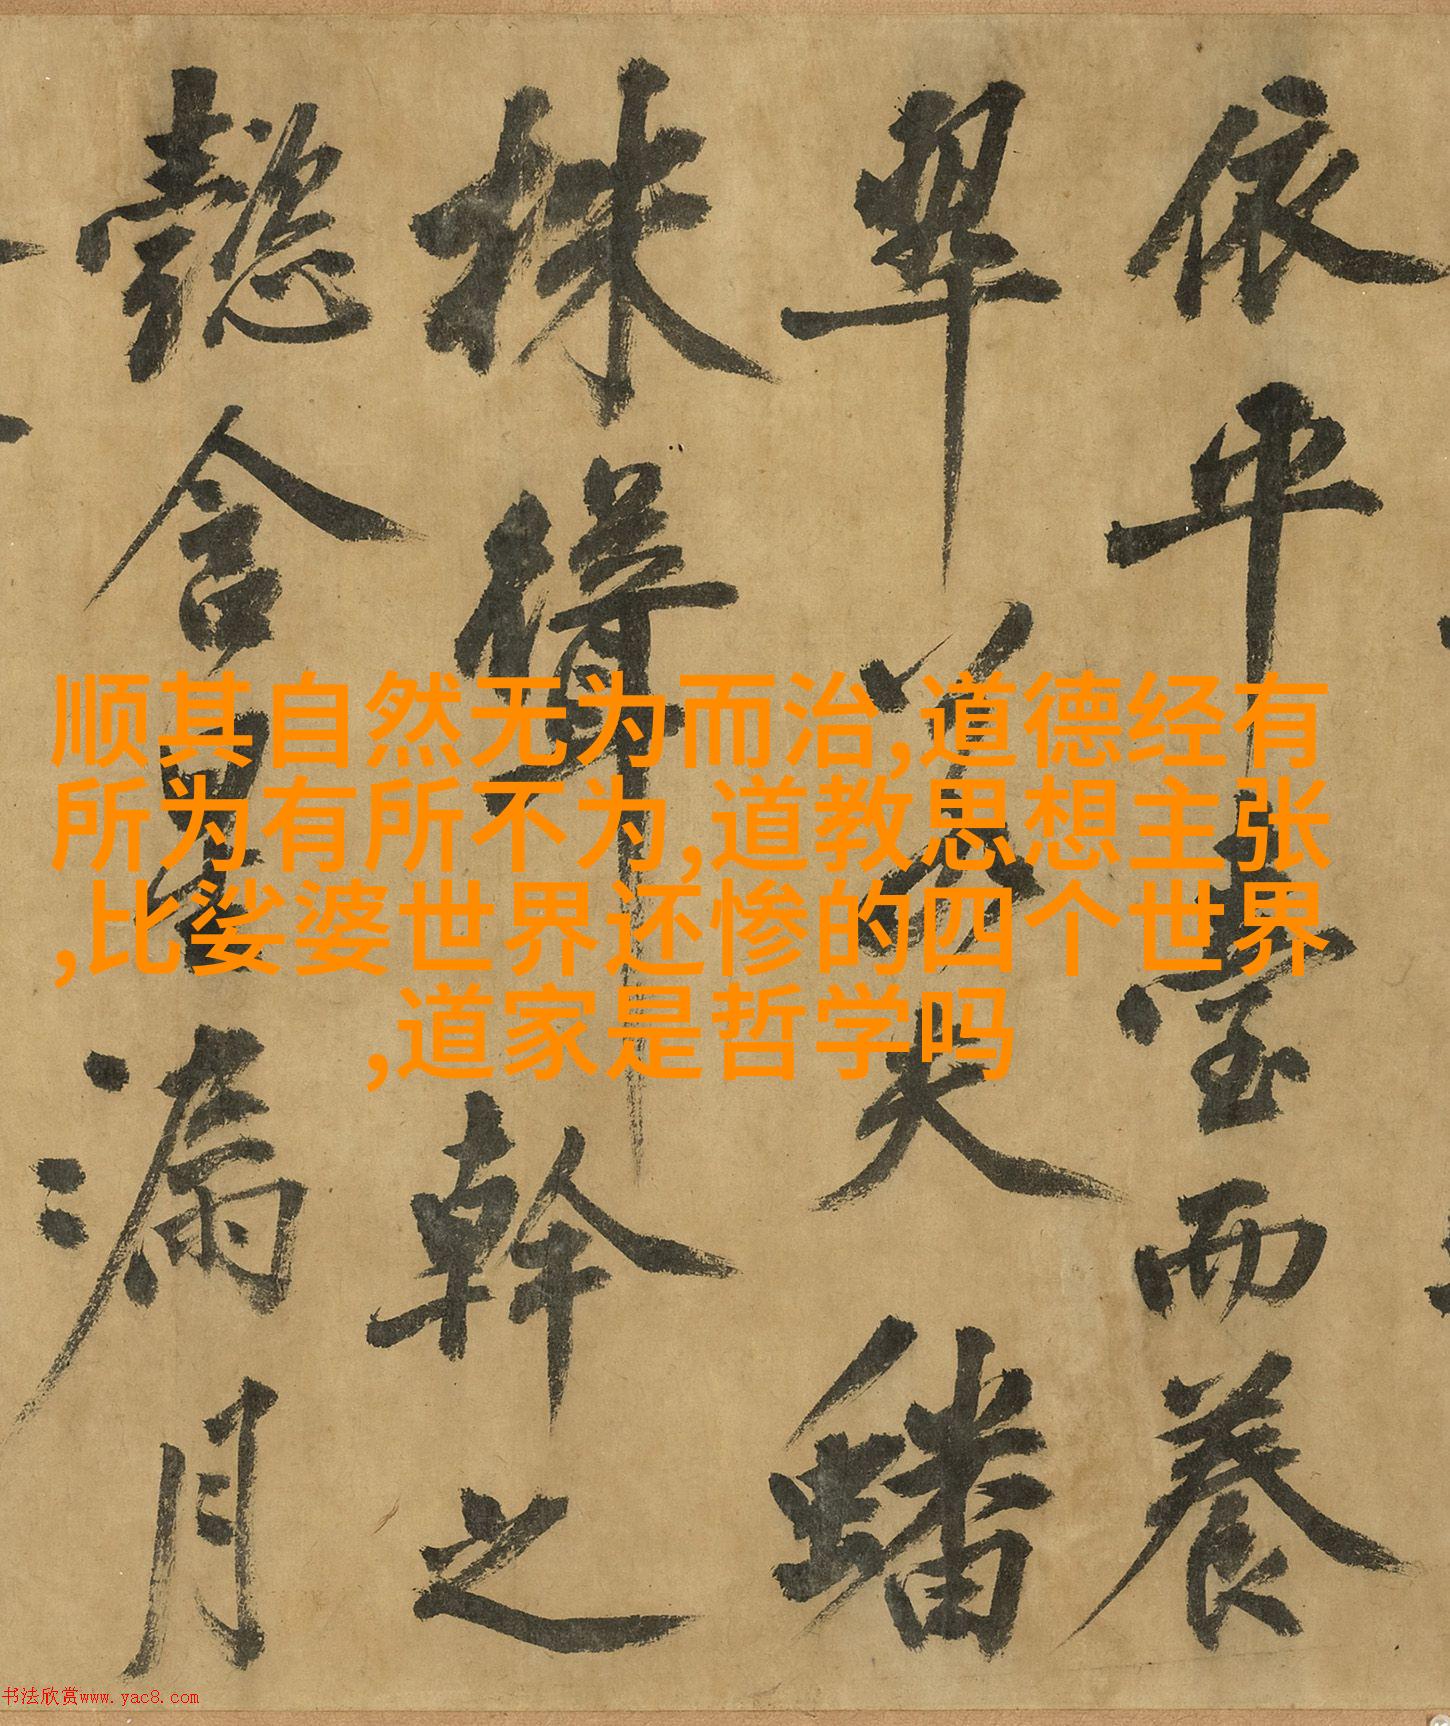 依平臺而養
翠夫蟠
株幹之
懿含星漏月
顺其自然无为而治,道德经有
所为有所不为,道教思想主张
,比娑婆世界还惨的四个世界
,道家是哲学吗
书法欣赏www.yac8.com